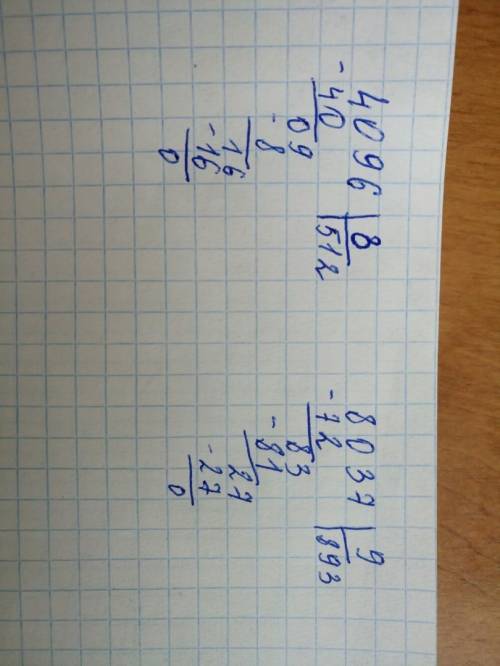 4096 | 8
- 40 | 512
09
- 8
16
- 16
0
8037 | 9
- 72 | 893
83
- 81
27
- 27
0